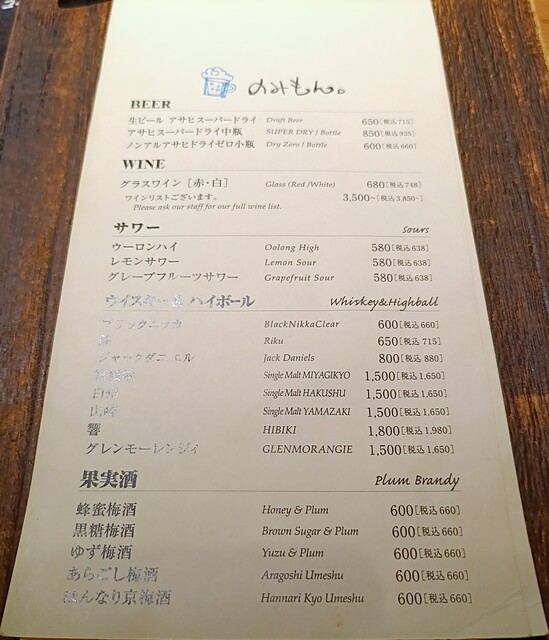 のみもん。
BEER
生ビール アサヒスーパードライ Draft Beer 650[税込715]
アサヒスーパードライ中瓶 SUPER DRY / Bottle 850[税込935]
ノンアルアサヒドライゼロ小瓶 Dry Zero / Bottle 600[税込660]
WINE
グラスワイン［赤・白］ Glass (Red /White) 680[税込748]
ワインリストございます。 3,500~[税込3,850~]
Please ask our staff for our full wine list.
サワー sours
ウーロンハイ Oolong High 580[税込638]
レモンサワー Lemon Sour 580[税込638]
グレープフルーツサワー Grapefruit Sour 580[税込638]
ウイスキー& ハイボール Whiskey&Highball
ブラックニッカ BlackNikkaClear 600[税込660]
Riku 650[税込715]
ジャックダニエル Jack Daniels 800[税込880]
Single Malt MIYAGIKYO 1,500[税込1,650]
白州 Single Malt HAKUSHU 1,500[税込1,650]
山崎 Single Malt YAMAZAKI 1,500[税込1,650]
響 HIBIKI 1,800[税込1,980]
グレンモーレンジィ GLENMORANGIE 1,500[税込1,650]
果実酒 Plum Brandy
蜂蜜梅酒 Honey & Plum 600[税込660]
黒糖梅酒 Brown Sugar & Plum 600[税込660]
ゆず梅酒 Yuzu & Plum 600[税込660]
あらごし梅酒 Aragoshi Umeshu 600[税込660]
はんなり京梅酒 Hannari Kyo Umeshu 600[税込660]